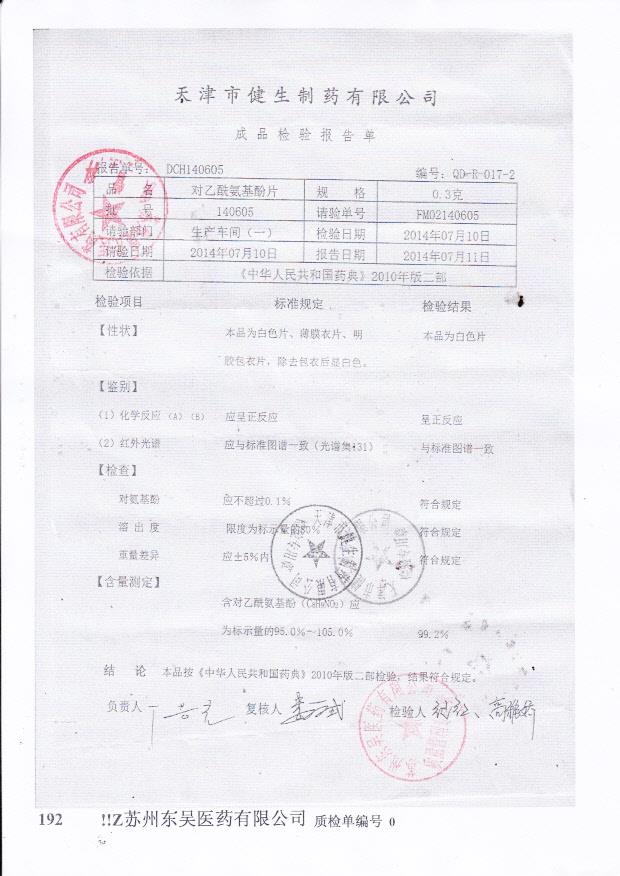 天津市健生制药有限公司
成品检验报告单
报告单号： DCH140605 编号：QD-R-017-2
品 名 对乙酰氨基酚片 规 格 0.3克
批 号 140605 请验单号 FM02140605
请验部门 生产车间（一） 检验日期 2014年07月10日
请验日期 2014年07月10日 报告日期 2014年07月11日
检验依据 《中华人民共和国药典》2010年版二部
检验项目 标准规定 检验结果
【性状】 本品为白色片、薄膜衣片、明 本品为白色片
胶包衣片，除去包衣后显白色。
【鉴别】
（1）化学反应（A）（B） 应呈正反应 呈正反应
（2）红外光谱 应与标准图谱一致（光谱集131） 与标准图谱一致
【检查】
对氨基酚 应不超过0.1% 符合规定
溶出度 限度为标示量的80% 符合规定
重量差异 应±5%内 符合规定
【含量测定】
含对乙酰氨基酚（C₈H₉NO₂）应
为标示量的95.0%～105.0% 99.2%
结 论 本品按《中华人民共和国药典》2010年版二部检验，结果符合规定。
负责人 复核人 检验人
192 !!Z苏州东吴医药有限公司 质检单编号 0